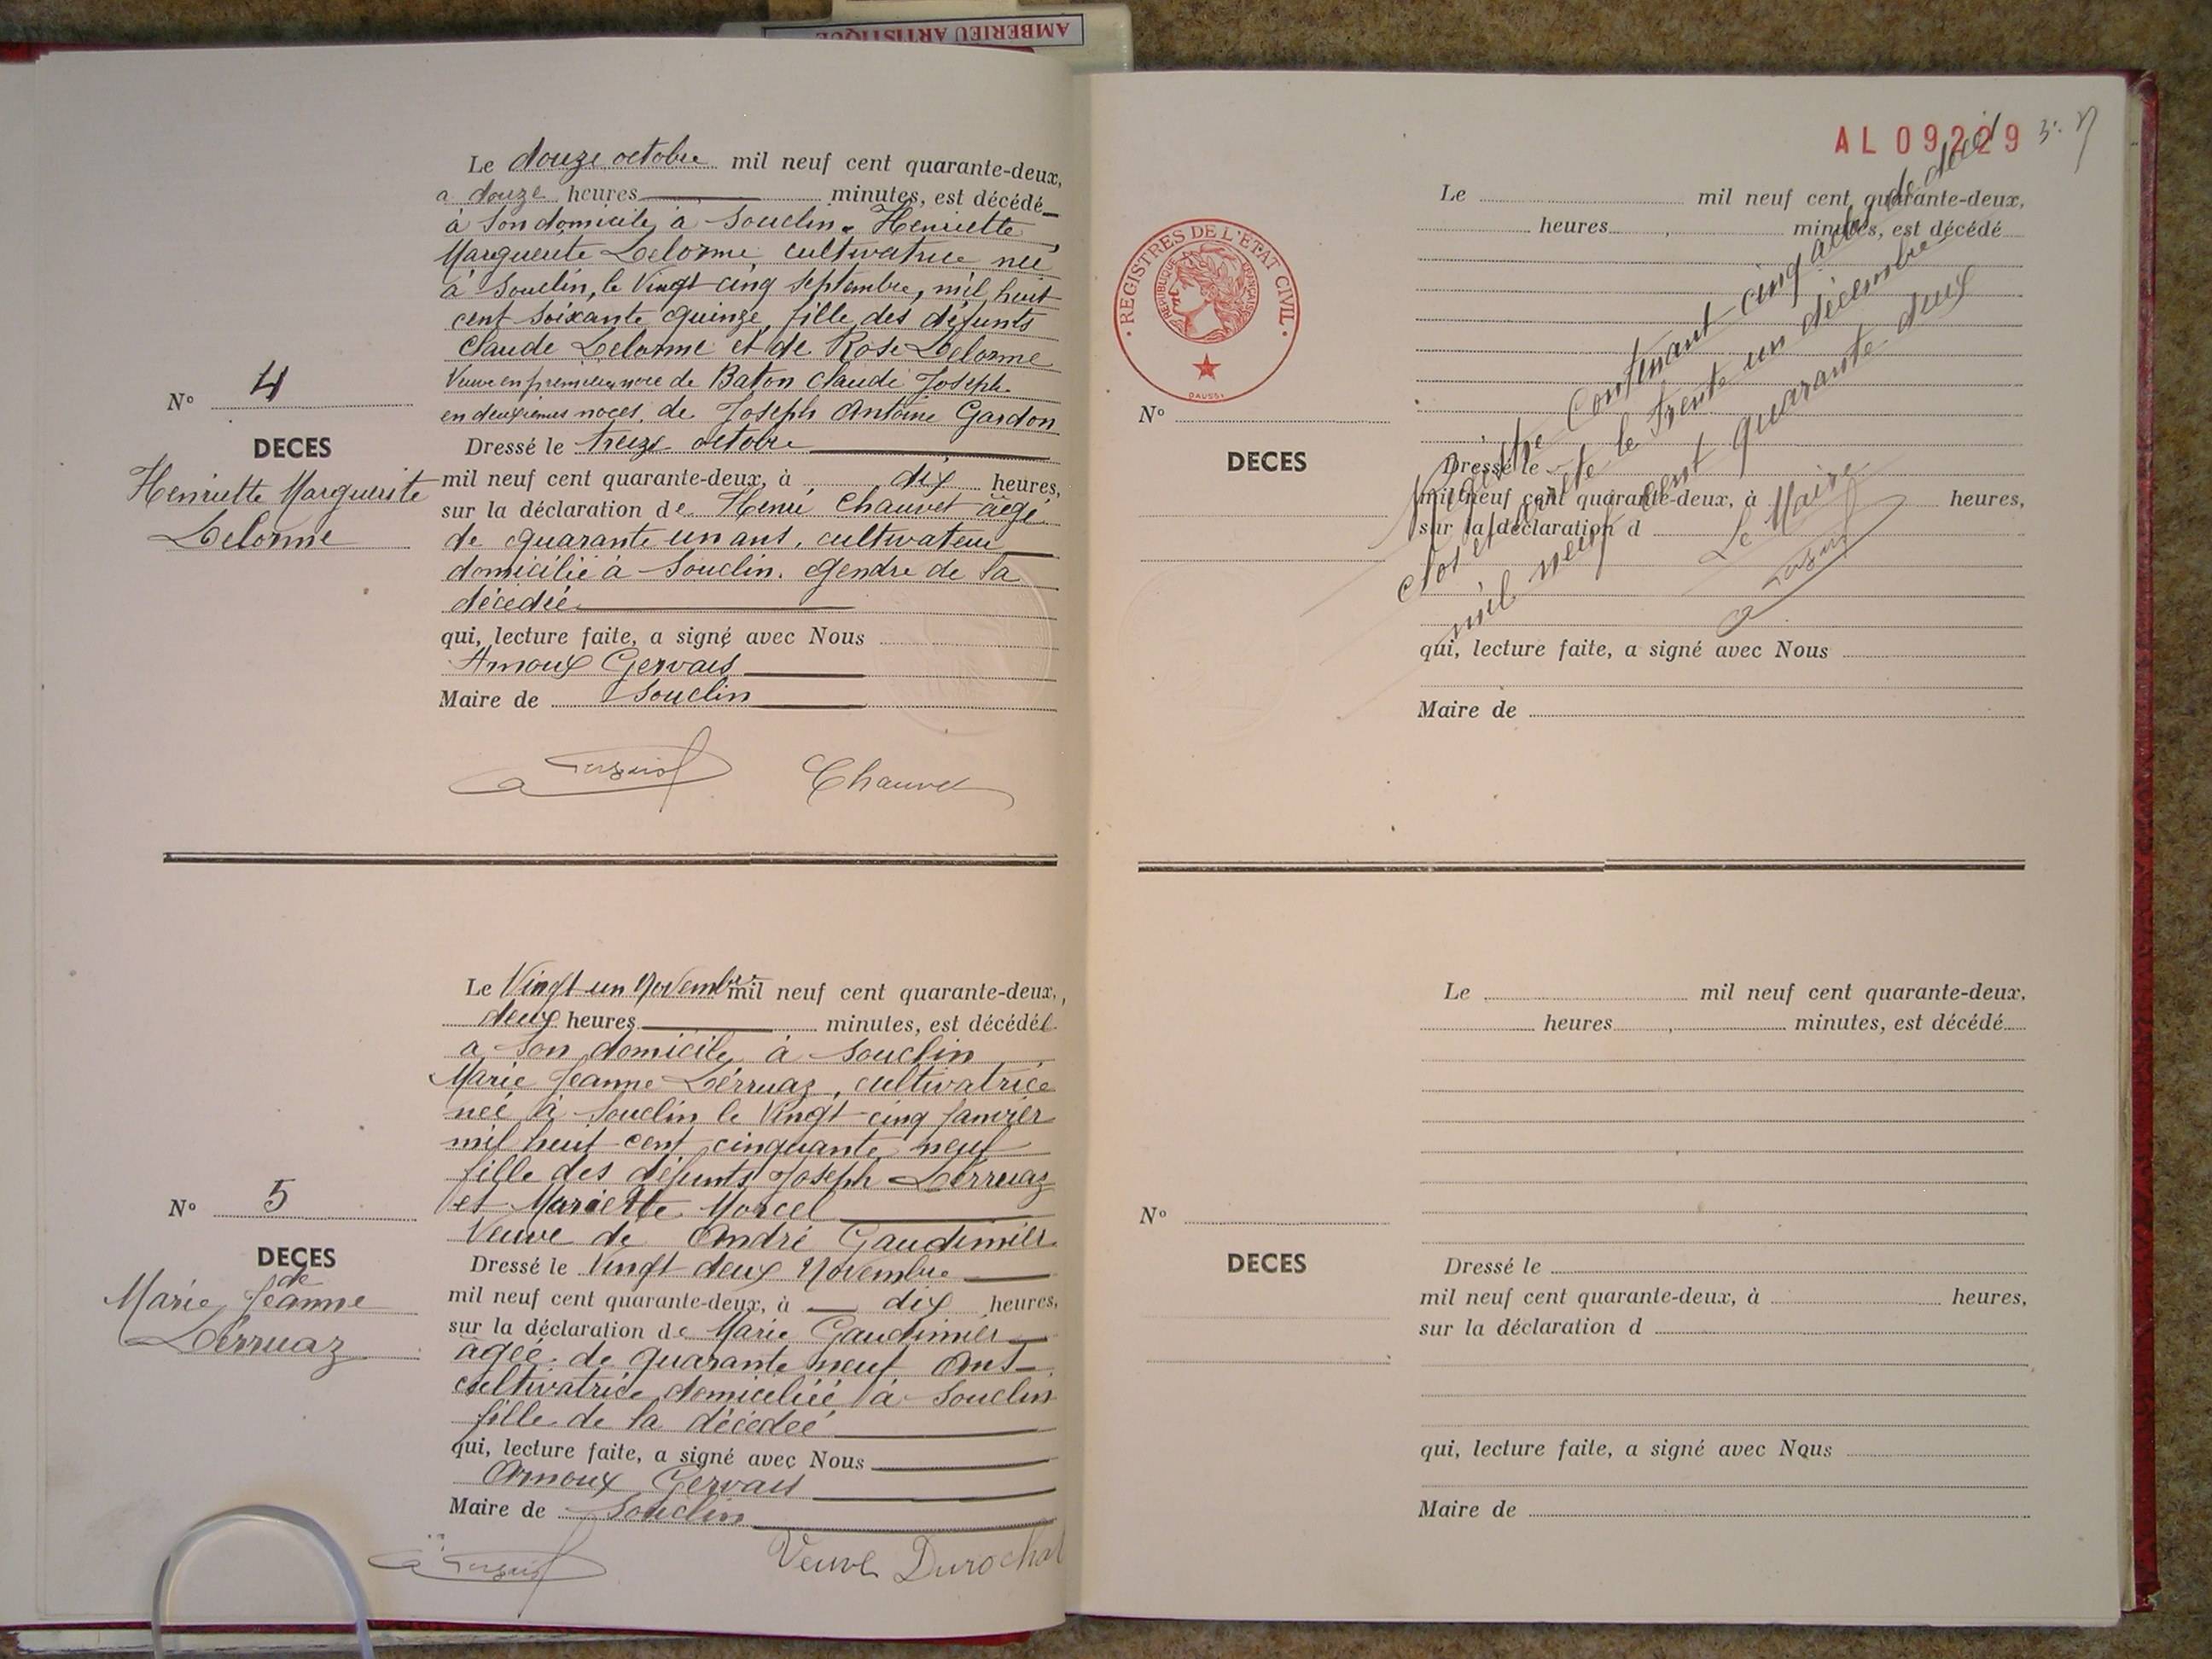 AMBERIEU ARTISTIQUE
Le douze octobre mil neuf cent quarante-deux,
a douze heures minutes, est décédé
à son domicile à Souclin. Henriette
Marguerite Delorme, cultivatrice née
à Souclin, le Vingt cinq septembre, mil huit
cent soixante quinze, fille des défunts
Claude Delorme et de Rose Delorme
Veuve en première noce de Baton Claude Joseph.
en deuxiemes noces, de Joseph Antoine Gardon
Nº 4
DECES
Henriette Marguerite
Delorme
Dressé le treize octobre
mil neuf cent quarante-deux, à dix heures,
sur la déclaration de Henri Chauvet agé
de quarante un ans, cultivateur
domicilié à Souclin. gendre de la
décédée
qui, lecture faite, a signé avec Nous
Arnoux Gervais
Maire de Souclin
Chauvet
Le Vingt un Novembre mil neuf cent quarante-deux,
deux heures minutes, est décédée
a son domicile à Souclin
Marie Jeanne Derruaz, cultivatrice
née à Souclin le Vingt-cinq Janvier
mil huit cent cinquante neuf
fille des défunts Joseph Derruaz
et Mariette Morcel
Veuve de André Gaudimier
Nº 5
DECES
de
Marie Jeanne
Derruaz
Dressé le Vingt deux Novembre
mil neuf cent quarante-deux, à dix heures,
sur la déclaration de Marie Gaudimier
agée de quarante neuf Ans
cultivatrice domiciliée à Souclin
fille de la décédée
qui, lecture faite, a signé avec Nous
Arnoux Gervais
Maire de Souclin
Veuve Durochat
AL 09229
Le mil neuf cent quarante-deux,
heures, minutes, est décédé
REGISTRES DE L'ÉTAT CIVIL
REPUBLIQUE FRANÇAISE
DAUSSI
Nº
DECES
Registre Contenant cinq actes de décès
clos et arrêté le Trente un décembre
mil neuf cent quarante deux
Le Maire
Dressé le
mil neuf cent quarante-deux, à heures,
sur la déclaration d
qui, lecture faite, a signé avec Nous
Maire de
Le mil neuf cent quarante-deux.
heures, minutes, est décédé
Nº
DECES
Dressé le
mil neuf cent quarante-deux, à heures,
sur la déclaration d
qui, lecture faite, a signé avec Nous
Maire de